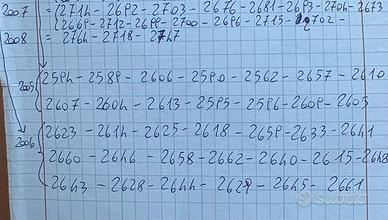 2007 = (2714 - 2692 - 2703 - 2676 - 2681 - 2693 - 2704 - 2673
(2669 - 2712 - 2699 - 2700 - 2696 - 2715 - 2702 -
2008 = 2764 - 2718 - 2747
2594 - 2589 - 2606 - 2590 - 2562 - 2657 - 2610
2005 2607 - 2604 - 2613 - 2595 - 2596 - 2609 - 2605
2623 - 2614 - 2625 - 2618 - 2659 - 2633 - 2641
2006 2660 - 2646 - 2658 - 2662 - 2640 - 2615 - 2648
2643 - 2628 - 2644 - 2629 - 2645 - 2661
subito